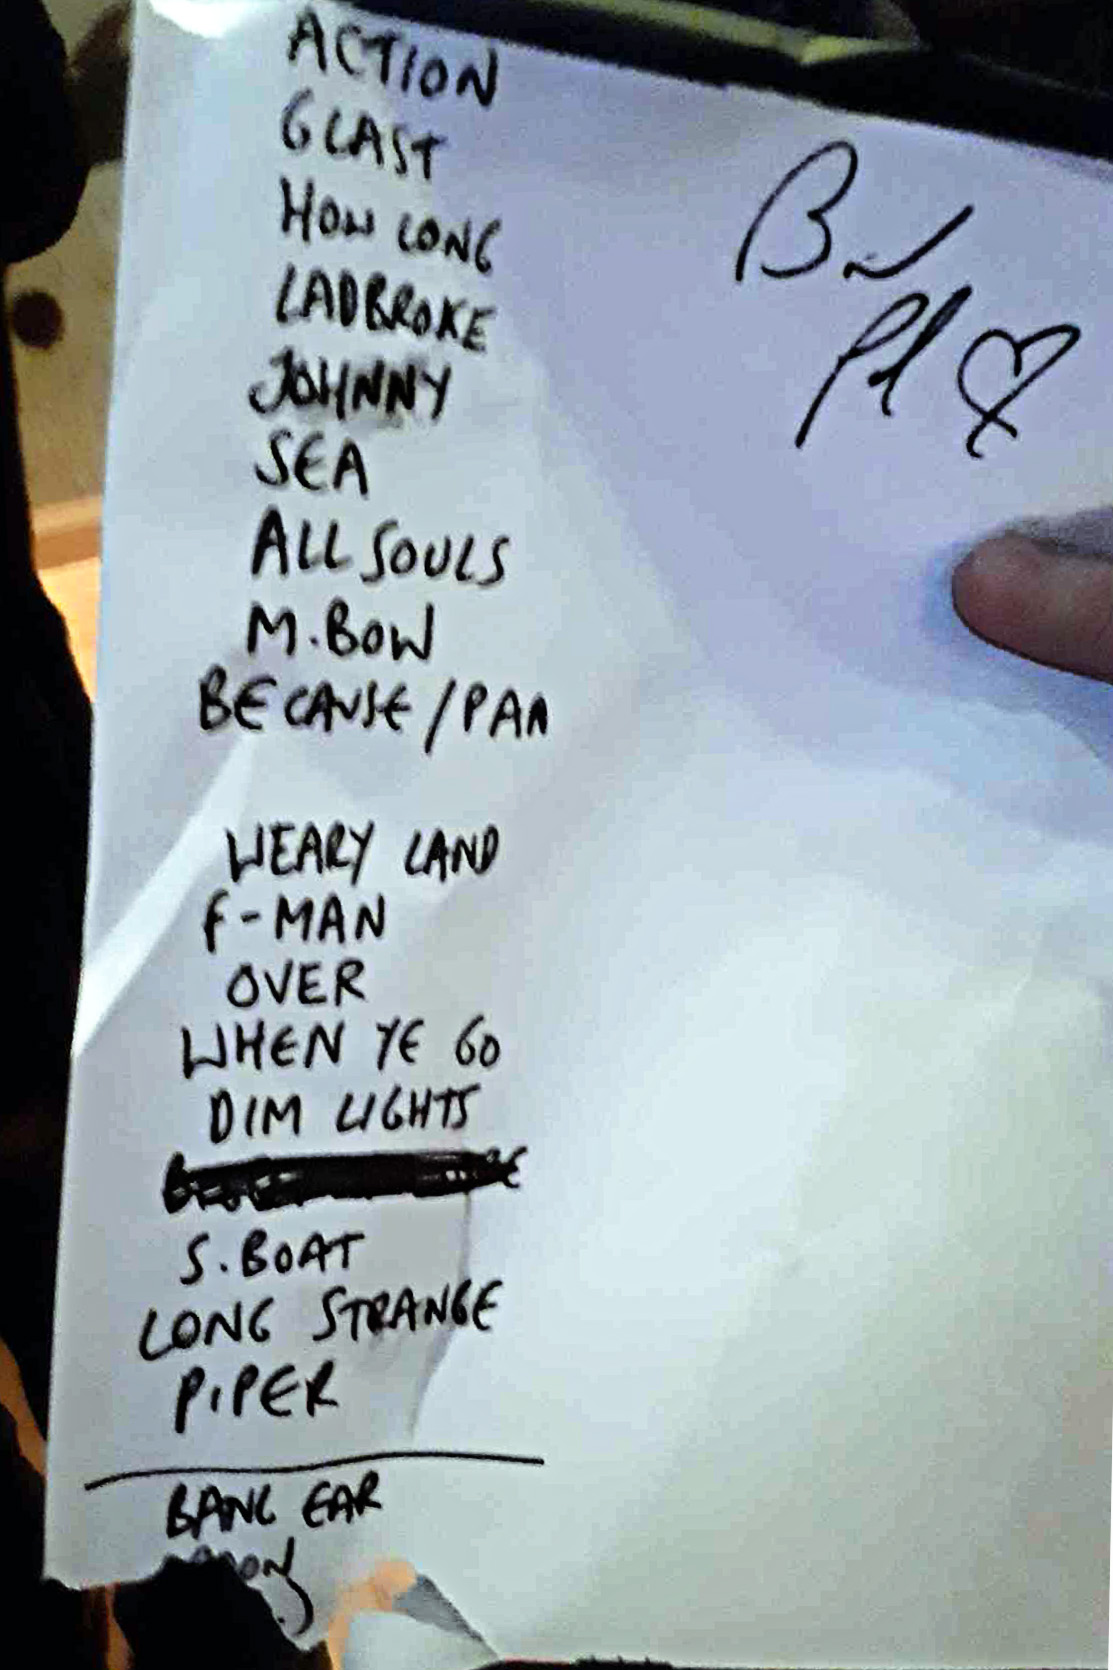 ACTION
GLAST
HOW LONG
LADBROKE
JOHNNY
SEA
ALL SOULS
M.BOW
BECAUSE/PAN
WEARY LAND
F-MAN
OVER
WHEN YE GO
DIM LIGHTS
S.BOAT
LONG STRANGE
PIPER
BANG EAR